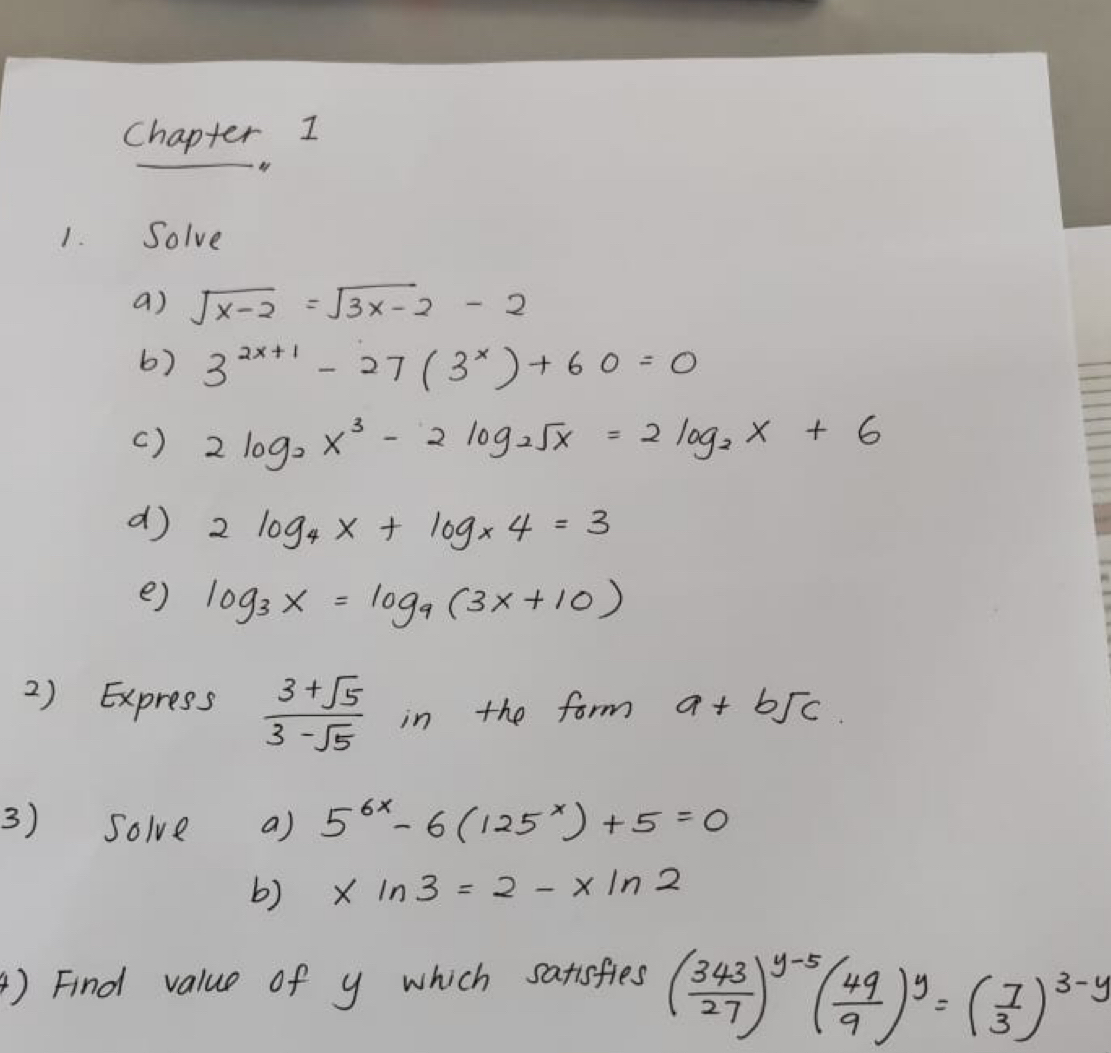 Chapter 1
1. Solve
a) √x-2 = √3x-2 - 2
b) 3^(2x+1) - 27(3^x) + 60 = 0
c) 2 log₂ x³ - 2 log₂√x = 2 log₂ x + 6
d) 2 log₄ x + logₓ 4 = 3
e) log₃ x = log₉ (3x+10)
2) Express (3+√5)/(3-√5) in the form a + b√c.
3) Solve a) 5^(6x) - 6(125^x) + 5 = 0
b) x ln 3 = 2 - x ln 2
4) Find value of y which satisfies (343/27)^(y-5) (49/9)^y = (7/3)^(3-y)